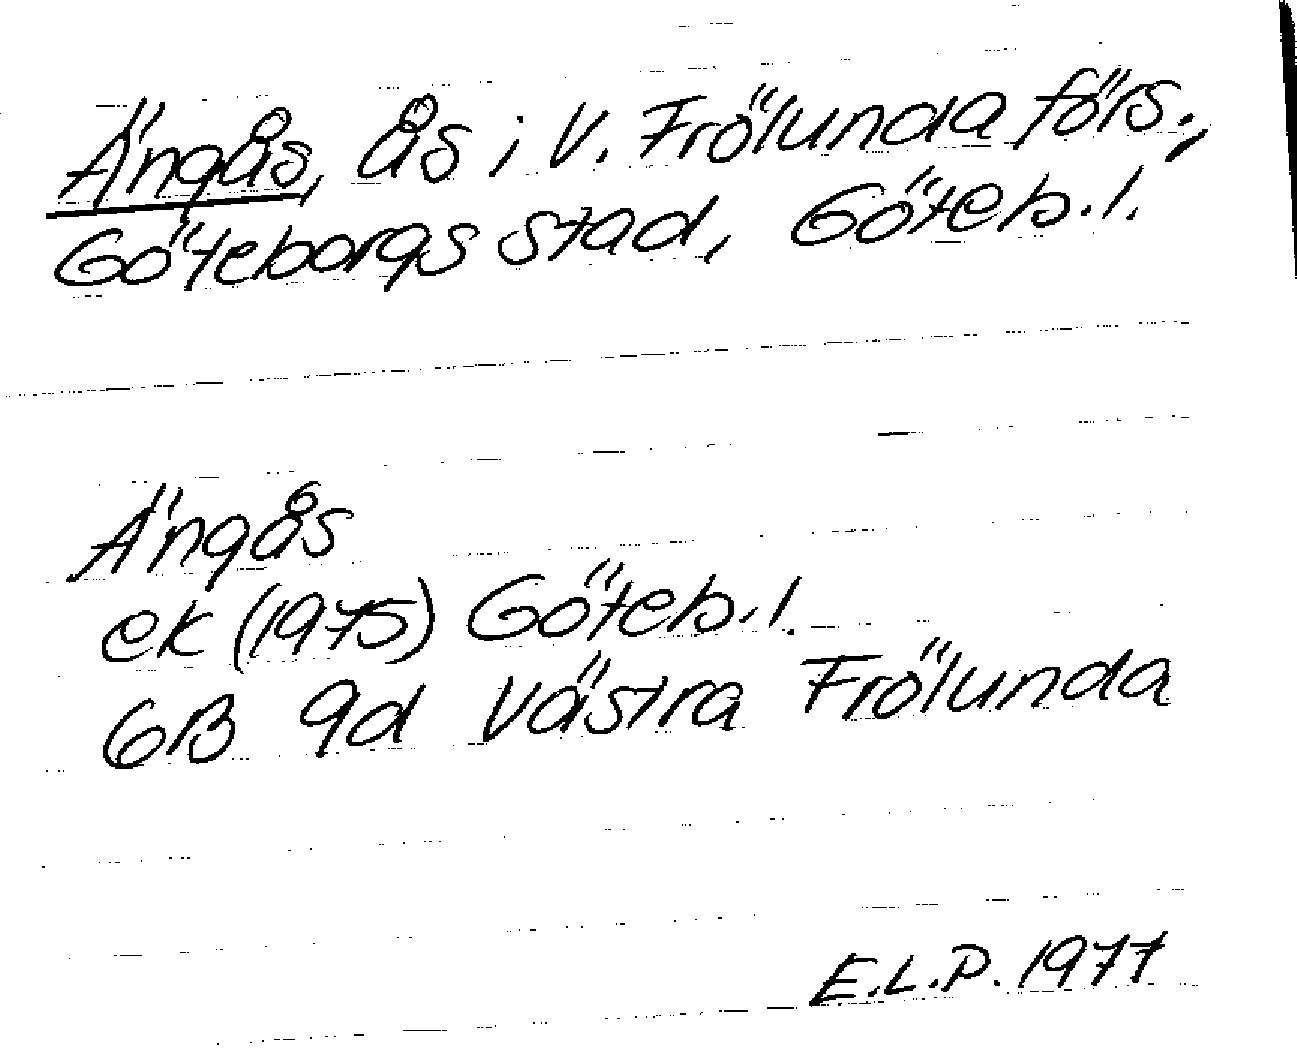 Ängås, ås i V. Frölunda förs.,
Göteborgs stad, Göteb.l.
Ängås
ek (1975) Göteb.l.
6B 9d Västra Frölunda
E.L.P. 1977